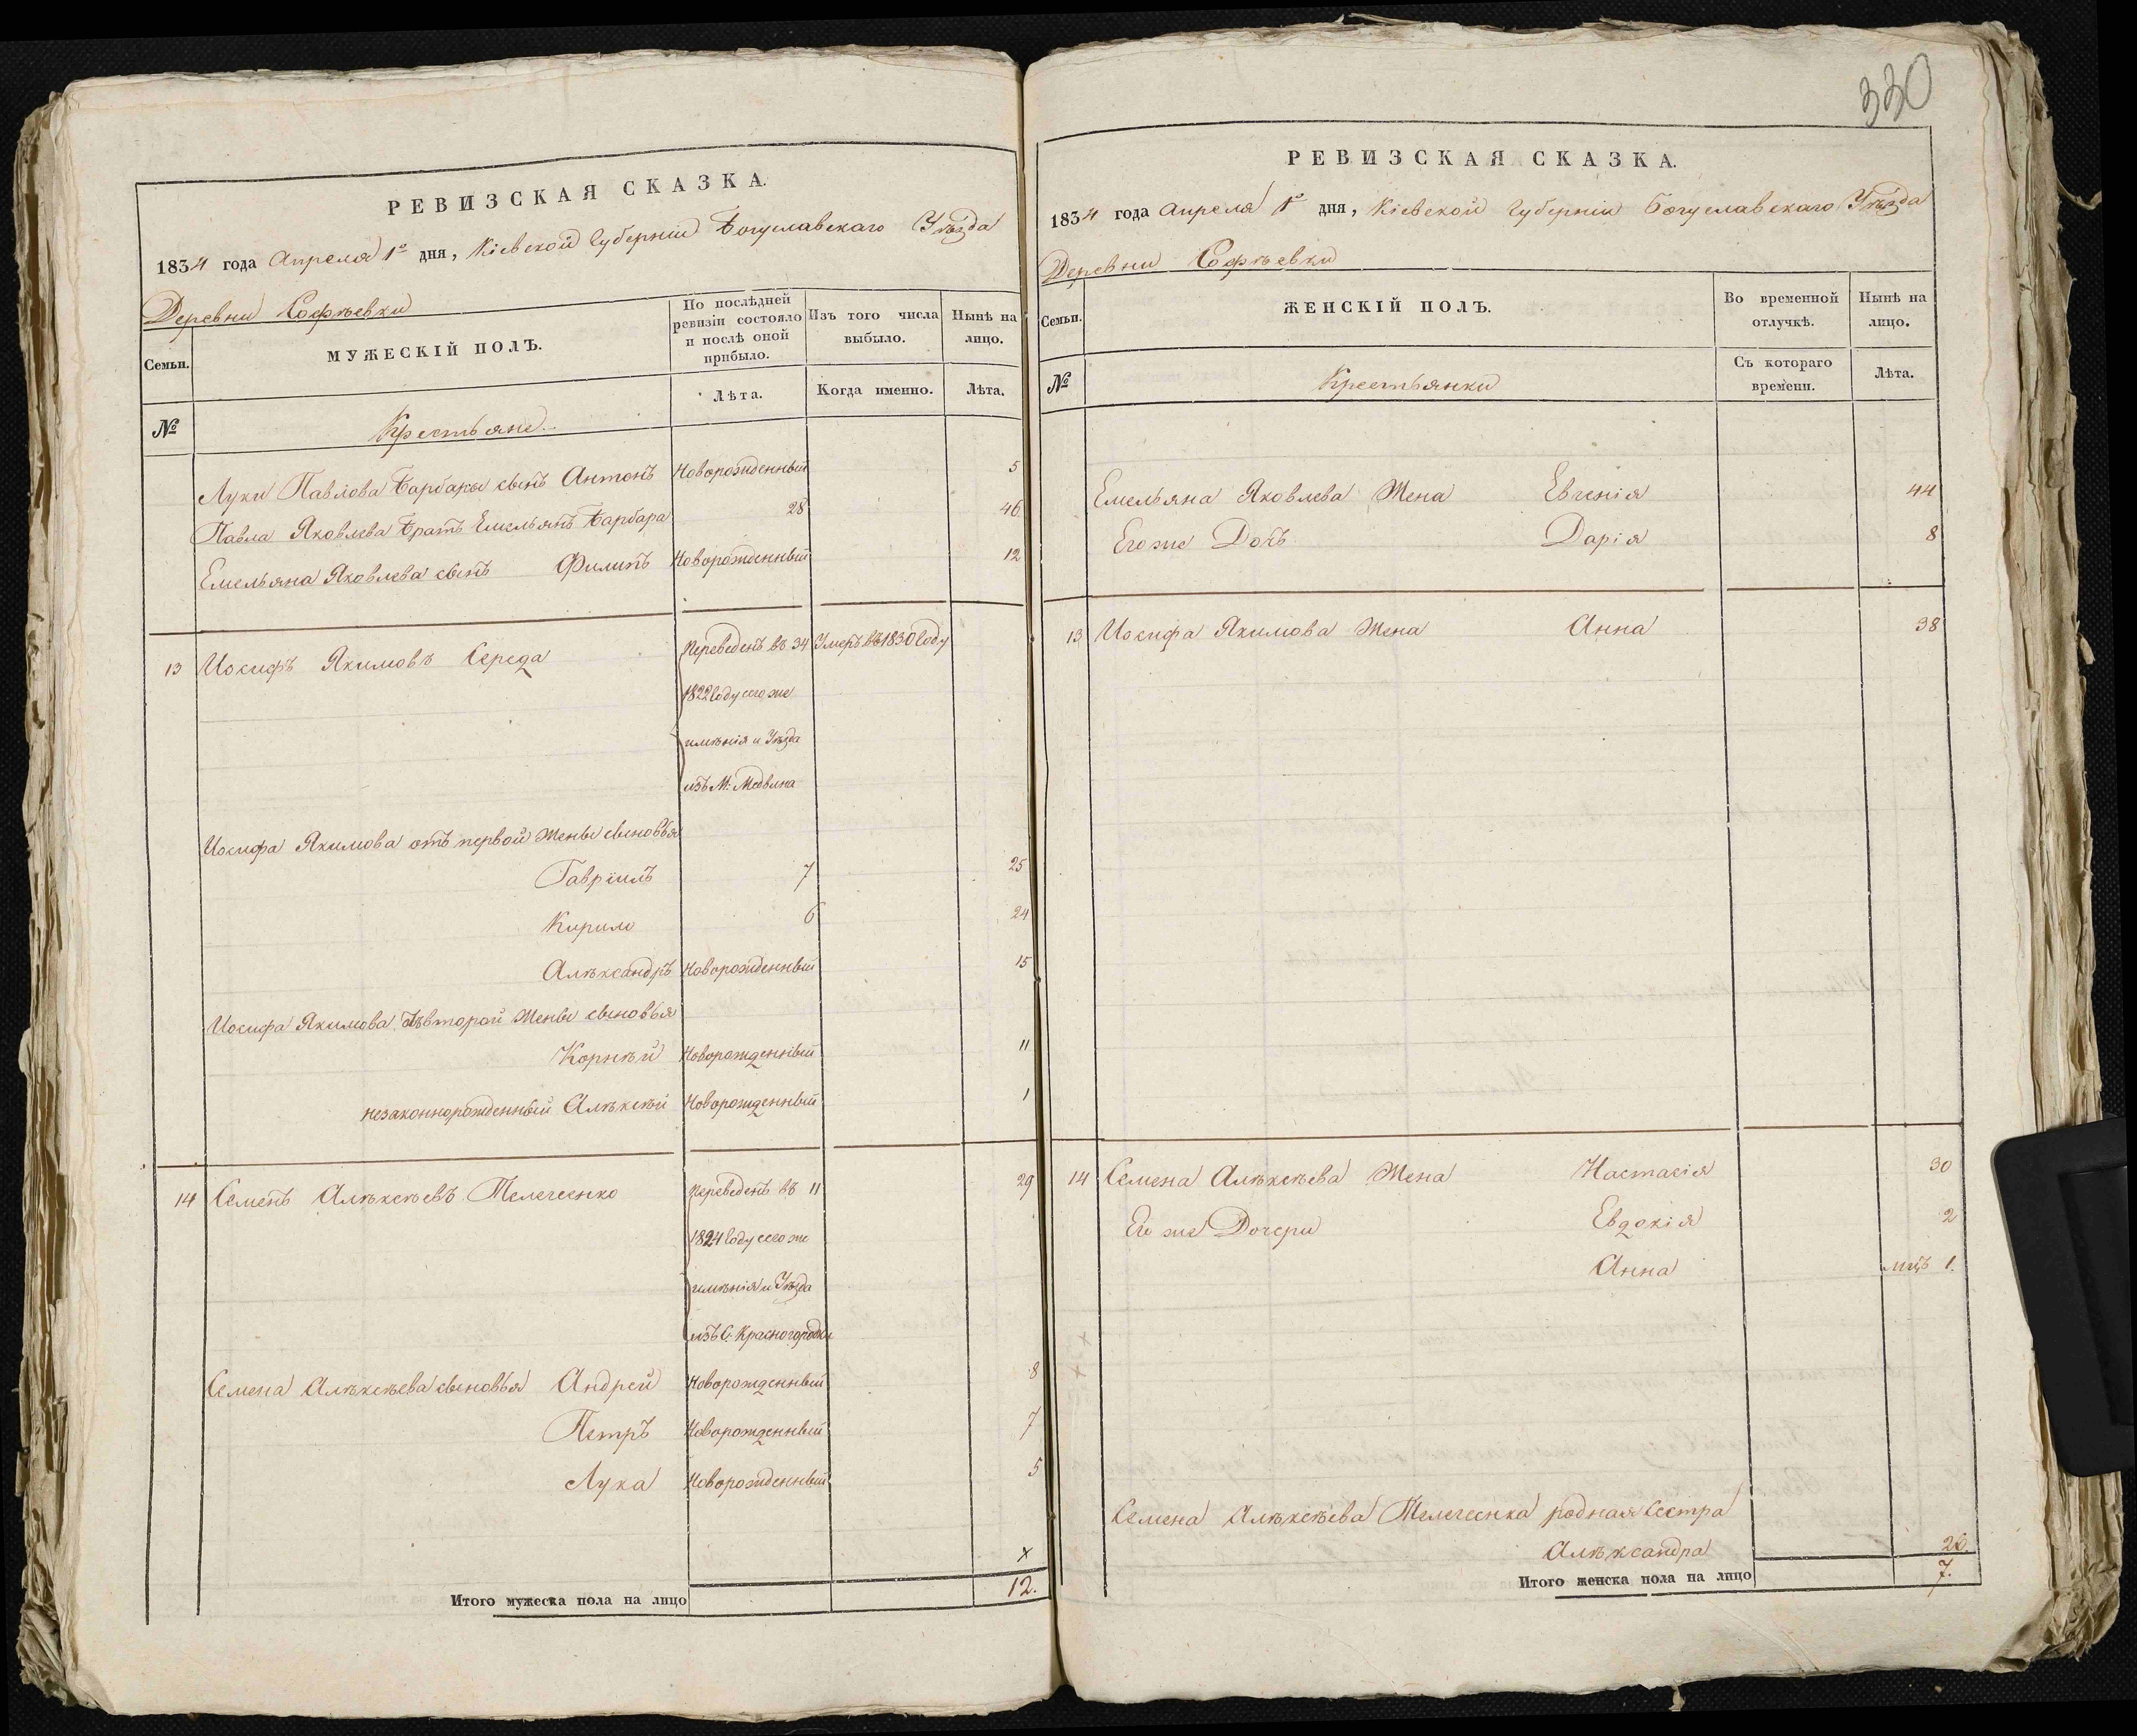 330
РЕВИЗСКАЯ СКАЗКА.
1834 года Апреля 1го дня, Кіевской Губерніи Богуславскаго Уѣзда
Деревни Софѣевки
Семьи.
МУЖЕСКІЙ ПОЛЪ.
По послѣдней ревизіи состояло и послѣ оной прибыло.
Изъ того числа выбыло.
Нынѣ на лицо.
№
Крестьяне
Лѣта.
Когда именно.
Лѣта.
Луки Павлова Барбары сынъ Антонъ Новорожденный 5
Павла Яковлева братъ Емельянъ Барбара 28 46
Емельяна Яковлева сынъ Филипъ Новорожденный 12
13 Иосифъ Якимовъ Середа Переведенъ въ 34 Умеръ въ 1830 Году
1822 Году сего же
имѣнія и Уѣзда
изъ М: Медвина
Иосифа Якимова отъ первой жены сыновья
Гавріилъ 7 25
Кирило 6 24
Алѣксандръ Новорожденный 15
Иосифа Якимова отъ второй жены сыновья
Корнѣй Новорожденный 11
незаконнорожденный Алѣксѣй Новорожденный 1
14 Семенъ Алѣксѣевъ Телегеенко Переведенъ въ 11 29
1824 Году сего же
имѣнія и Уѣзда
изъ С: Красногородки
Семена Алѣксѣева сыновья Андрей Новорожденный 8
Петръ Новорожденный 7
Лука Новорожденный 5
х
Итого мужеска пола на лицо 12.
РЕВИЗСКАЯ СКАЗКА.
1834 года Апреля 1го дня, Кіевской Губерніи Богуславскаго Уѣзда
Деревни Софѣевки
Семьи.
ЖЕНСКІЙ ПОЛЪ.
Во временной отлучкѣ.
Нынѣ на лицо.
№
Крестьянки
Съ котораго времени.
Лѣта.
Емельяна Яковлева Жена Евгенія 44
Его же Дочь Дарія 8
13 Иосифа Якимова Жена Анна 38
14 Семена Алѣксѣева Жена Настасія 30
Его же Дочери Евдокія 2
Анна мцъ 1.
Семена Алѣксѣева Телегеенка родная Сестра
Алѣксандра 26.
Итого женска пола на лицо 7.